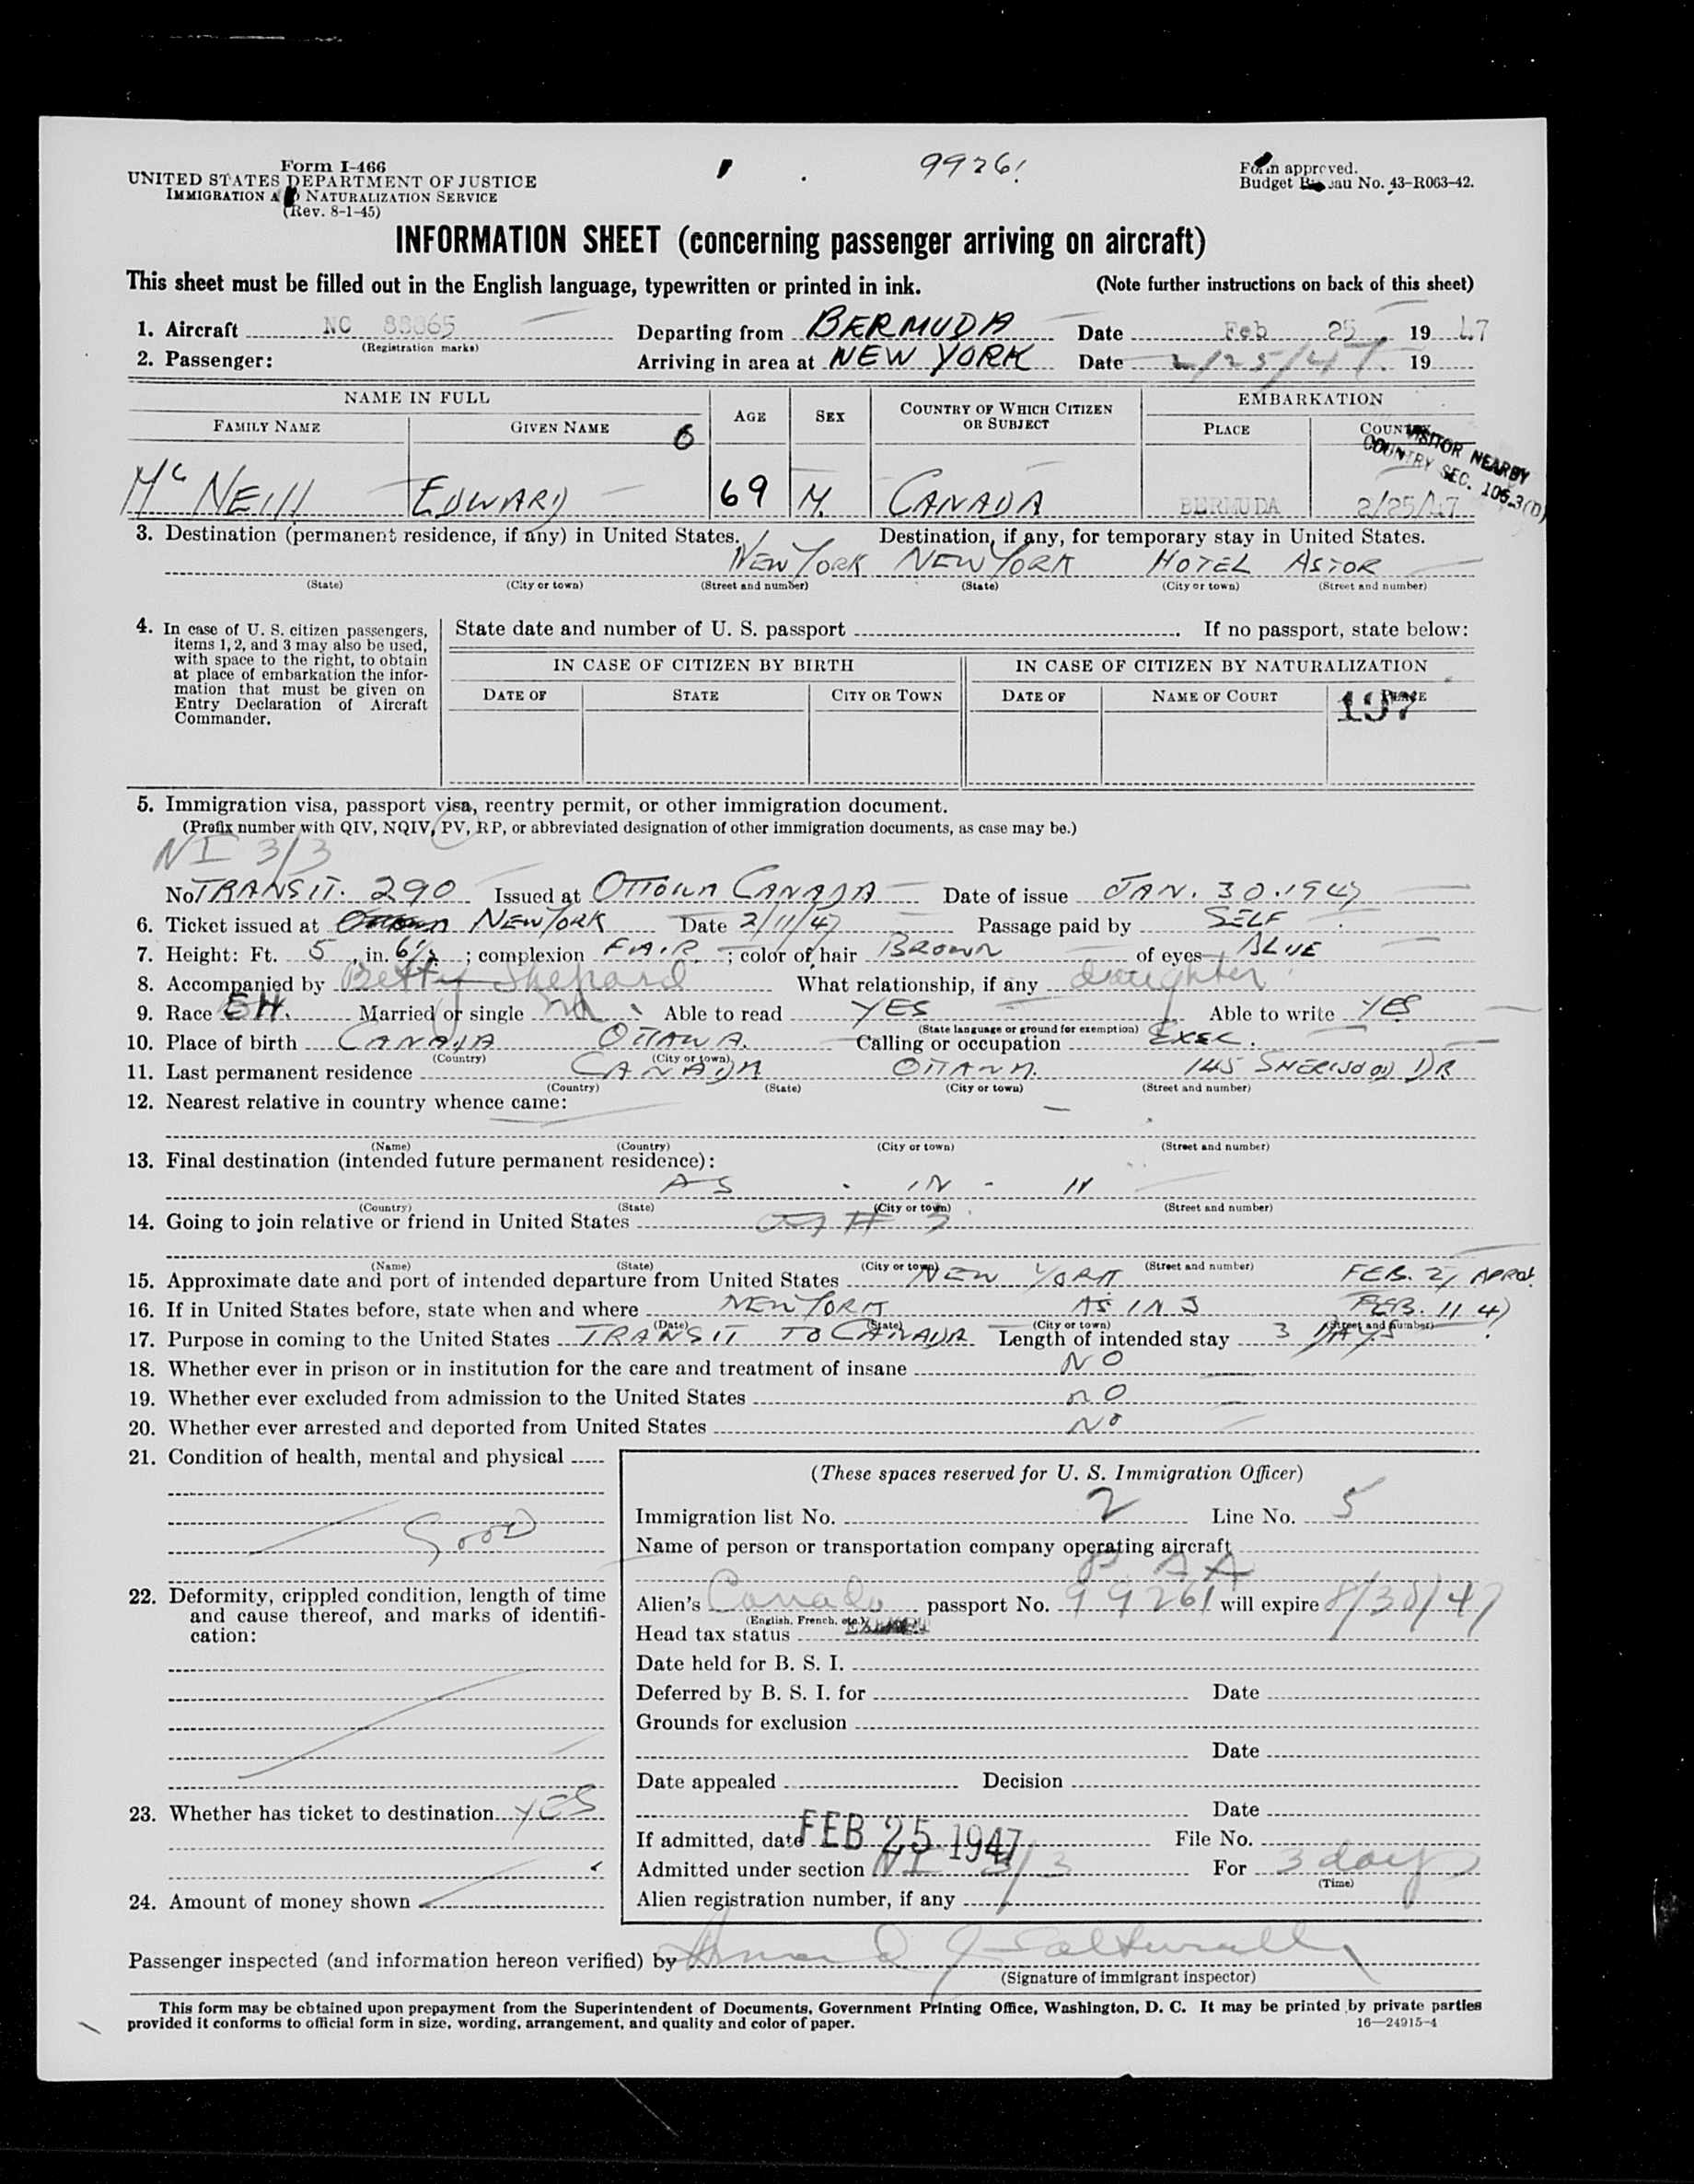 Form I-466
UNITED STATES DEPARTMENT OF JUSTICE
IMMIGRATION AND NATURALIZATION SERVICE
(Rev. 8-1-45)
99261
Form approved.
Budget Bureau No. 43-R063-42.
INFORMATION SHEET (concerning passenger arriving on aircraft)
This sheet must be filled out in the English language, typewritten or printed in ink. (Note further instructions on back of this sheet)
1. Aircraft NC 88865 Departing from BERMUDA Date Feb 25 1947
(Registration marks)
2. Passenger: Arriving in area at NEW YORK Date 2/25/47. 19
NAME IN FULL AGE SEX COUNTRY OF WHICH CITIZEN OR SUBJECT EMBARKATION
FAMILY NAME GIVEN NAME 6 PLACE COUNTRY
VISITOR NEARBY
COUNTRY SEC. 105.3(D)
McNEILL EDWARD 69 M. CANADA BERMUDA 2/25/47
3. Destination (permanent residence, if any) in United States. Destination, if any, for temporary stay in United States.
NEW YORK NEW YORK HOTEL ASTOR
(State) (City or town) (Street and number) (State) (City or town) (Street and number)
4. In case of U. S. citizen passengers, items 1, 2, and 3 may also be used, with space to the right, to obtain at place of embarkation the information that must be given on Entry Declaration of Aircraft Commander.
State date and number of U. S. passport . If no passport, state below:
IN CASE OF CITIZEN BY BIRTH IN CASE OF CITIZEN BY NATURALIZATION
DATE OF STATE CITY OR TOWN DATE OF NAME OF COURT PLACE
197
5. Immigration visa, passport visa, reentry permit, or other immigration document.
(Prefix number with QIV, NQIV, PV, RP, or abbreviated designation of other immigration documents, as case may be.)
NI 3/3
No. TRANSIT. 290 Issued at OTTOWA CANADA Date of issue JAN. 30. 1947
6. Ticket issued at NEW YORK Date 2/11/47 Passage paid by SELF
7. Height: Ft. 5, in. 6½; complexion FAIR; color of hair BROWN of eyes BLUE
8. Accompanied by Betty Shepard What relationship, if any daughter
9. Race Married or single Able to read YES Able to write YES
(State language or ground for exemption)
10. Place of birth CANADA OTTAWA. Calling or occupation EXEC.
(Country) (City or town)
11. Last permanent residence CANADA OTTAWA. 145 SHERWOOD DR
(Country) (State) (City or town) (Street and number)
12. Nearest relative in country whence came:
(Name) (Country) (City or town) (Street and number)
13. Final destination (intended future permanent residence):
AS - IN - 11
(Country) (State) (City or town) (Street and number)
14. Going to join relative or friend in United States # 3
(Name) (State) (City or town) (Street and number)
15. Approximate date and port of intended departure from United States NEW YORK FEB. 27 APROX.
16. If in United States before, state when and where NEW YORK AS IN 3 FEB. 11 47
(Date) (State) (City or town) (Street and number)
17. Purpose in coming to the United States TRANSIT TO CANADA Length of intended stay 3 DAYS
18. Whether ever in prison or in institution for the care and treatment of insane NO
19. Whether ever excluded from admission to the United States NO
20. Whether ever arrested and deported from United States NO
21. Condition of health, mental and physical
GOOD
22. Deformity, crippled condition, length of time and cause thereof, and marks of identification:
23. Whether has ticket to destination YES
24. Amount of money shown
(These spaces reserved for U. S. Immigration Officer)
Immigration list No. 2 Line No. 5
Name of person or transportation company operating aircraft
P A A
Alien's Canada passport No. 99261 will expire 8/30/47
(English, French, etc.)
Head tax status EXEMPT
Date held for B. S. I.
Deferred by B. S. I. for Date
Grounds for exclusion
Date
Date appealed Decision
Date
If admitted, date FEB 25 1947 File No.
Admitted under section NI 3/3 For 3 days
(Time)
Alien registration number, if any
Passenger inspected (and information hereon verified) by
(Signature of immigrant inspector)
This form may be obtained upon prepayment from the Superintendent of Documents, Government Printing Office, Washington, D. C. It may be printed by private parties
provided it conforms to official form in size, wording, arrangement, and quality and color of paper. 16—24915-4